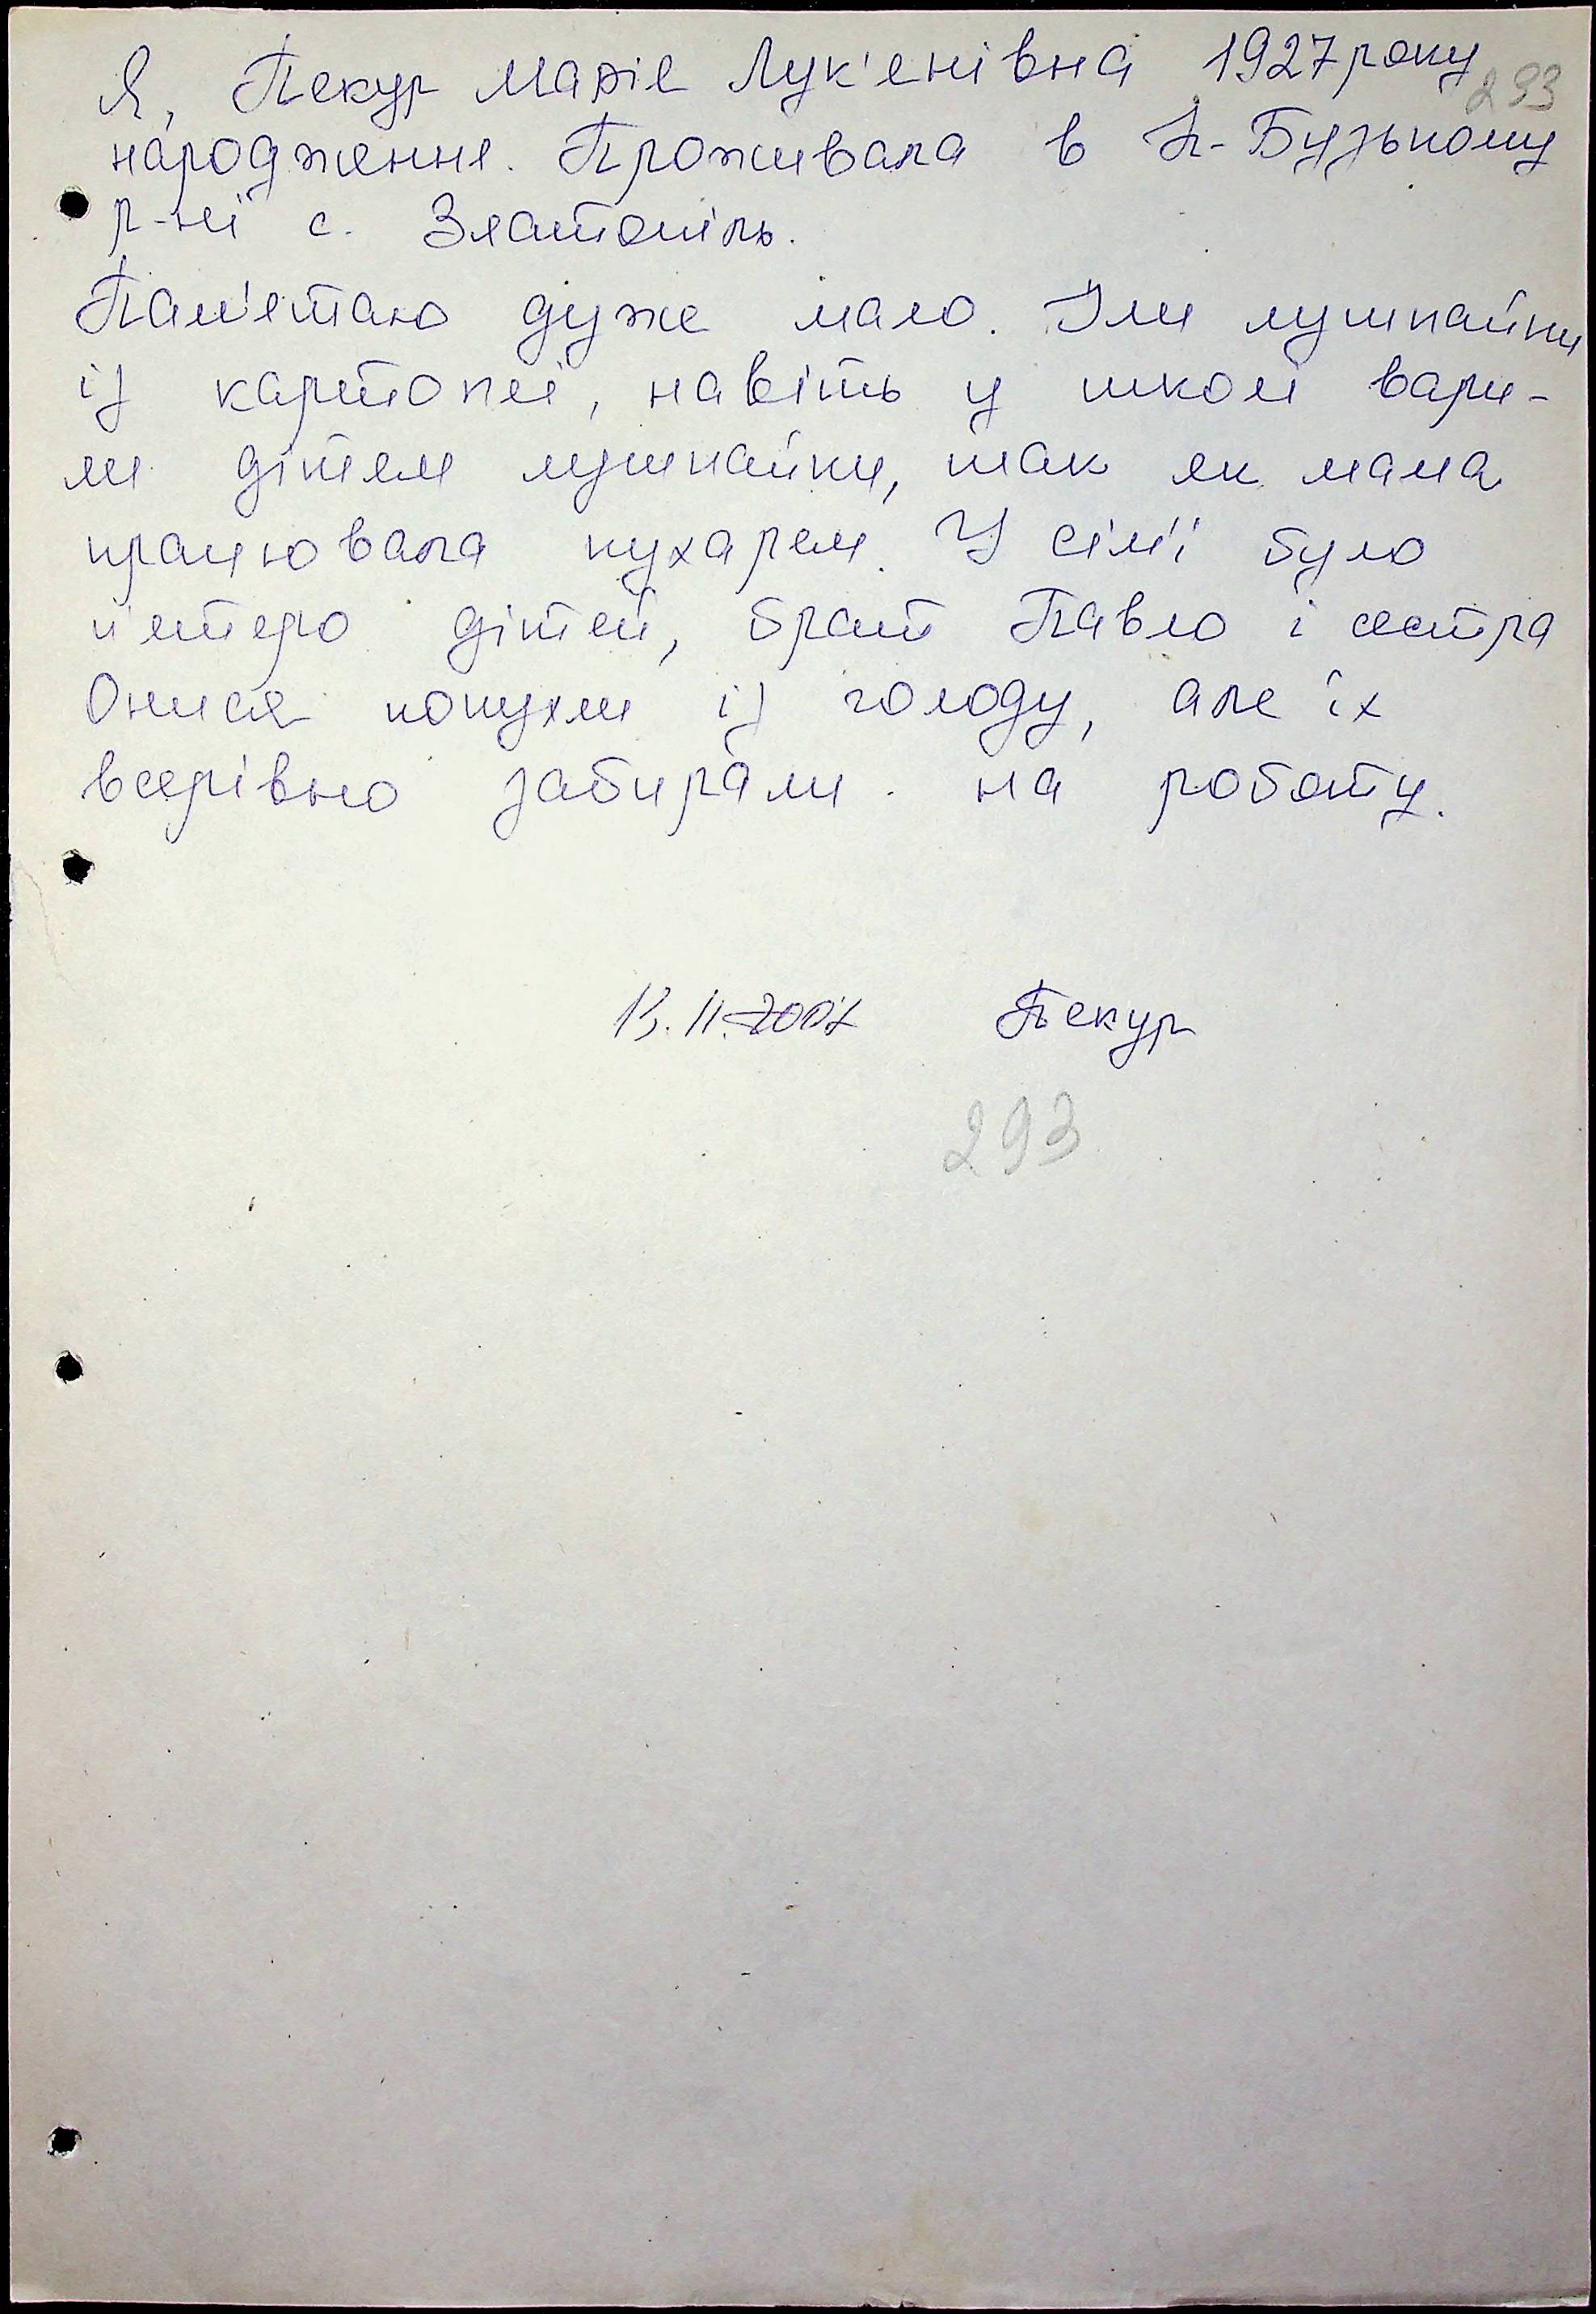 Я, Пекур Марія Лук'янівна 1927 року
293
народження. Проживала в К-Бузькому
р-ні с. Златопіль.
Пам'ятаю дуже мало. Їли лушпайки
із картоплі, навіть у школі вари-
ли дітям лушпайки, так як мама
працювала кухарем. У сім'ї було
п'ятеро дітей, брат Павло і сестра
Онися попухли із голоду, але їх
всерівно забирали на роботу.
13.11.2007 Пекур
293